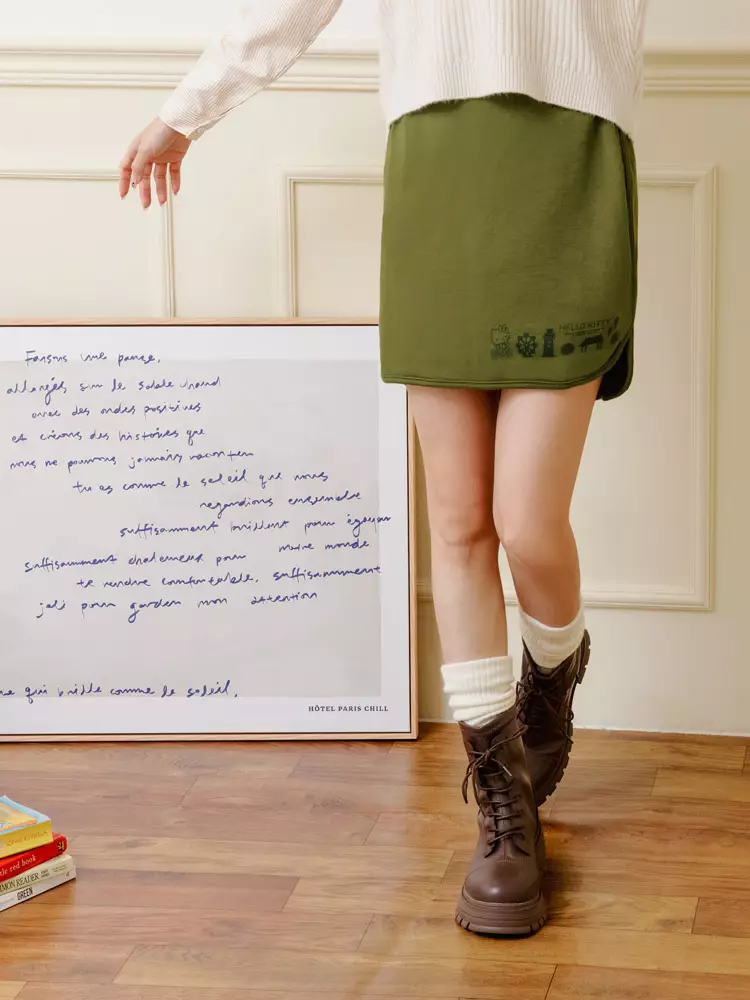 Faisons une pause,
allongés sur le sable chaud
avec des ondes positives
et créons des histoires que
nous ne pouvons jamais raconter
tu es comme le soleil que nous
regardions ensemble
suffisamment brillent pour égayer
notre monde
suffisamment chaleureux pour
te rendre confortable, suffisamment
joli pour garder mon attention
qui brille comme le soleil.
HÔTEL PARIS CHILL
HELLO KITTY
red book
MON READER
GREEN